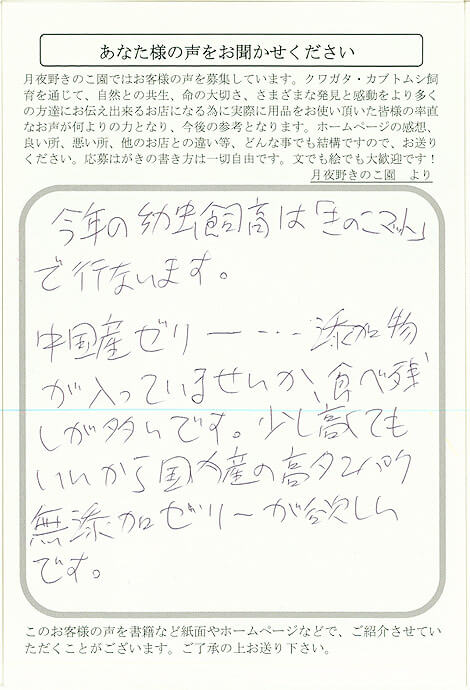 あなた様の声をお聞かせください
月夜野きのこ園ではお客様の声を募集しています。クワガタ・カブトムシ飼
育を通じて、自然との共生、命の大切さ、さまざまな発見と感動をより多く
の方達にお伝え出来るお店になる為に実際に用品をお使い頂いた皆様の率直
なお声が何よりの力となり、今後の参考となります。ホームページの感想、
良い所、悪い所、他のお店との違い等、どんな事でも結構ですので、お送り
ください。応募はがきの書き方は一切自由です。文でも絵でも大歓迎です！
月夜野きのこ園　より
今年の幼虫飼育は「きのこマット」
で行ないます。
中国産ゼリー ー・・・添加物
が入っていませいか、食べ残
しが多いです。少し高くても
いいから国内産の高タンパク
無添加ゼリーが欲しい
です。
このお客様の声を書籍など紙面やホームページなどで、ご紹介させてい
ただくことがございます。ご了承の上お送り下さい。